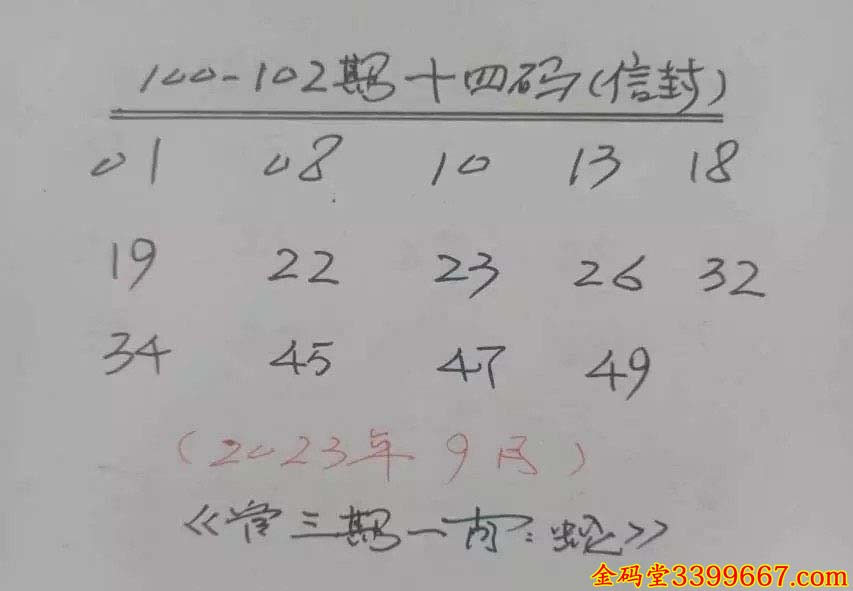 100-102期十四码(信封)
01 08 10 13 18
19 22 23 26 32
34 45 47 49
(2023年9月)
《管三期一肖:蛇》
金码堂3399667.com